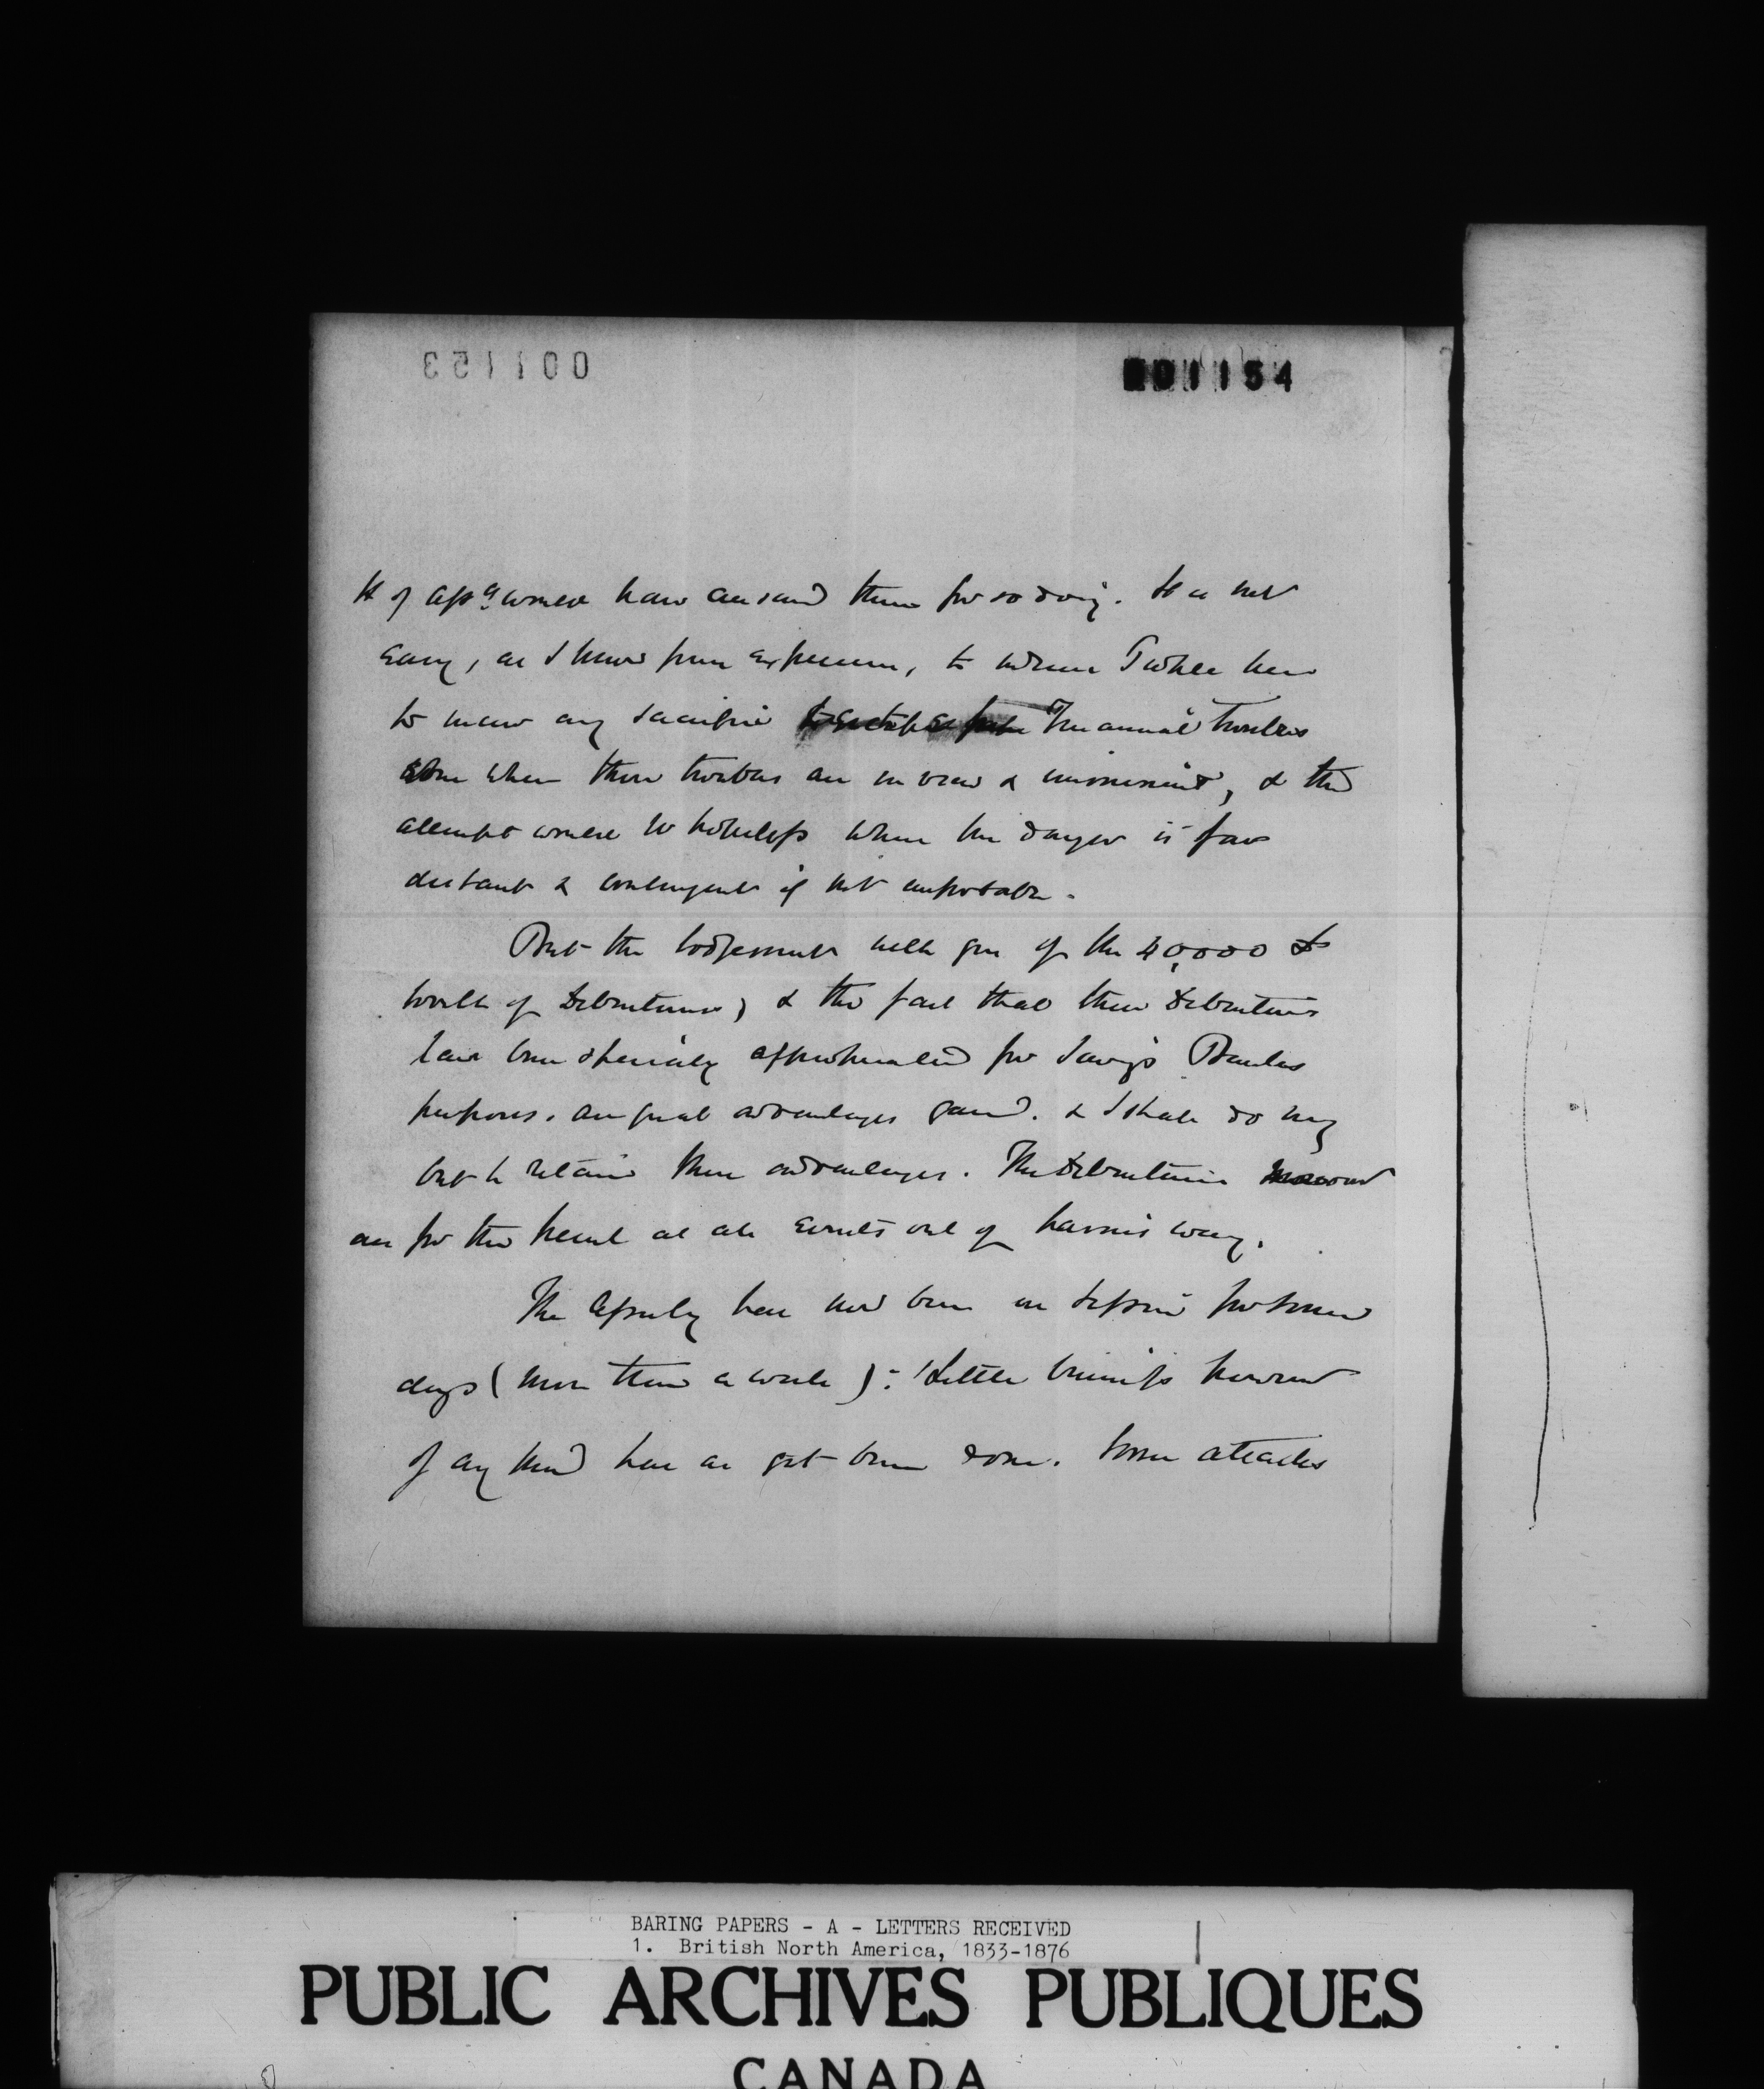 001153
001154
H of Ass.y would have censured them for so doing. It is not
easy, as I know from experience, to induce people here
to incur any sacrifice financial troubles
even when those troubles are in view & imminent, & the
attempt would be hopeless when the danger is far
distant & contingent if not improbable.
But the lodgement with you of the 40,000 £
worth of Debentures, & the fact that these Debentures
have been specially appropriated for Savings Banks
purposes, are great advantages gained. & I shall do my
best to retain these advantages. The Debentures
are for the present at all events out of harm's way.
The Assembly have now been in Session for some
days (more than a week): little business however
of any kind has as yet been done. Some attacks
BARING PAPERS - A - LETTERS RECEIVED
1. British North America, 1833-1876
PUBLIC ARCHIVES PUBLIQUES
CANADA